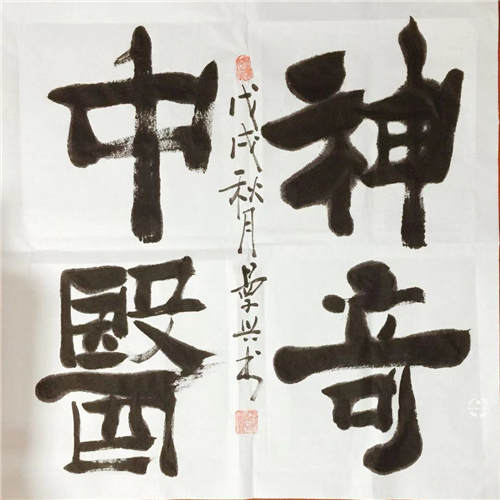 神奇
中醫
戊戌秋月景兴书